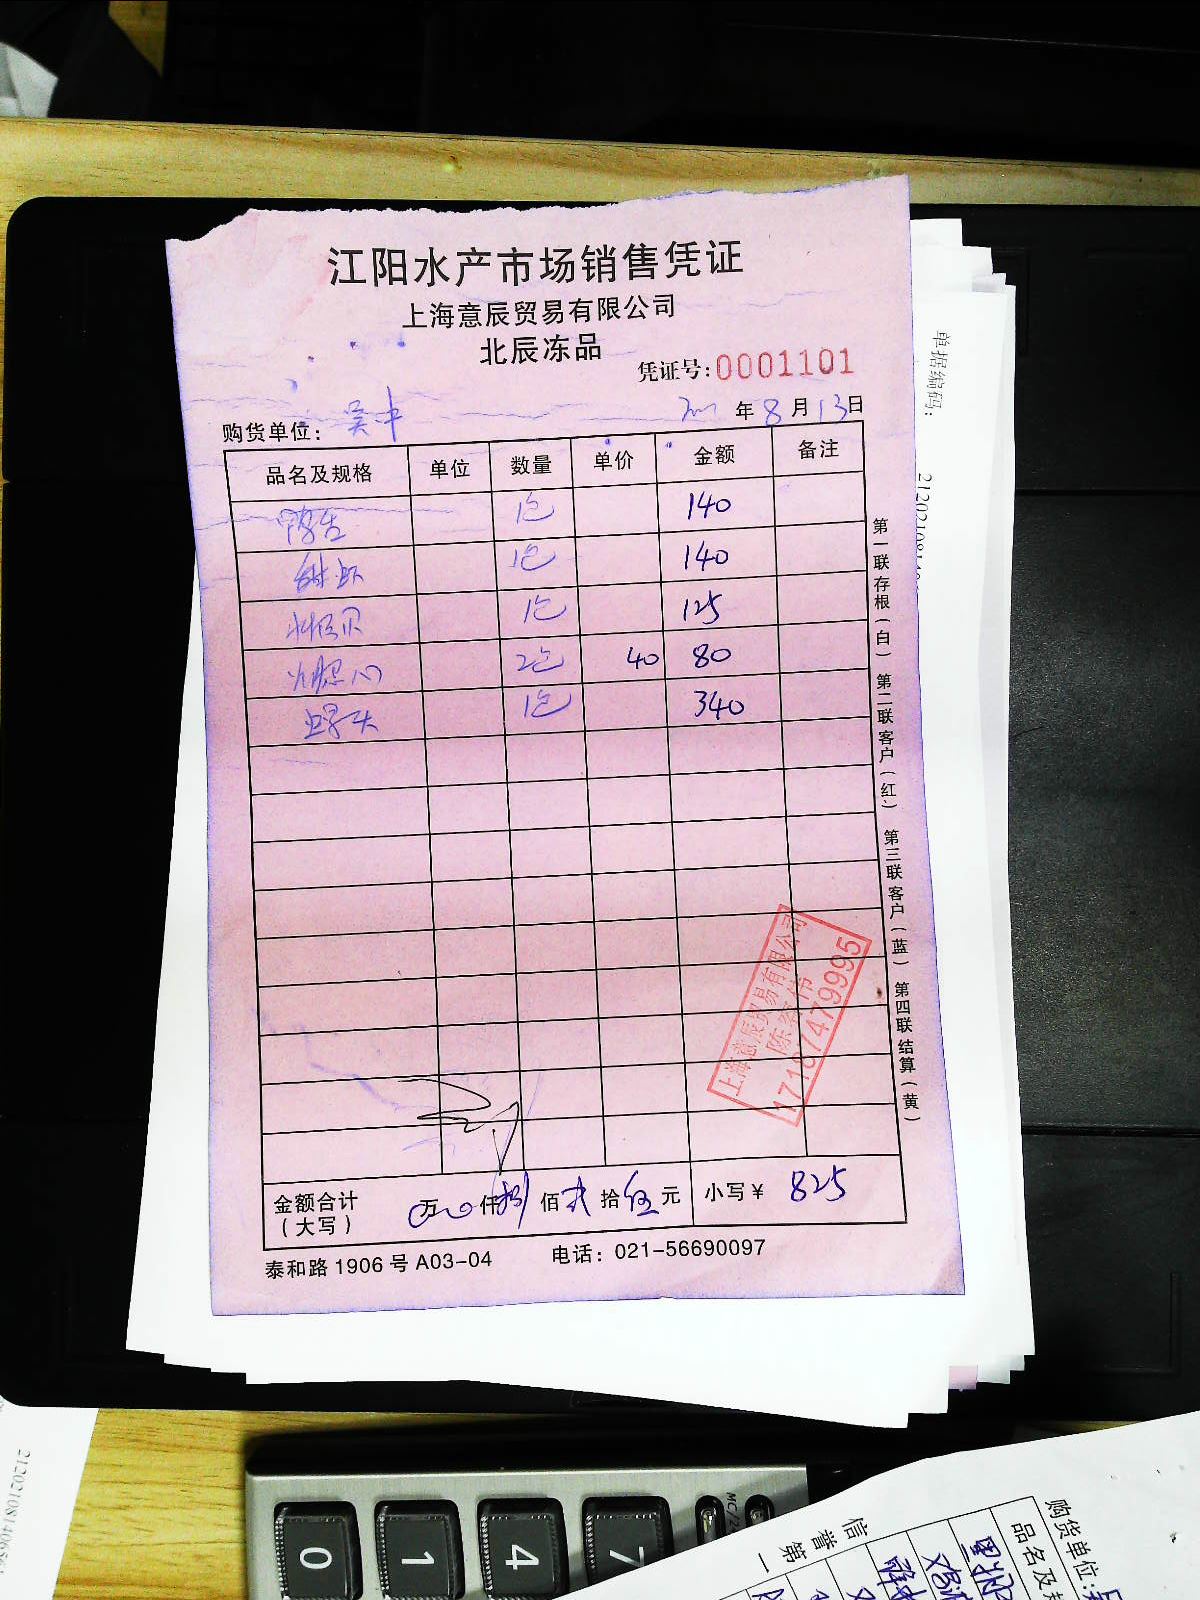 江阳水产市场销售凭证
上海意辰贸易有限公司
北辰冻品
凭证号:0001101
购货单位: 吴中 年8月13日
品名及规格 单位 数量 单价 金额 备注
1包 140
1包 140
1包 125
2包 40 80
1包 340
金额合计 万 仟捌佰贰拾伍元 小写¥ 825
(大写)
泰和路1906号A03-04 电话: 021-56690097
第一联存根(白) 第二联客户(红) 第三联客户(蓝) 第四联结算(黄)
上海意辰贸易有限公司
17187479995
单据编码:
0 1 4 7
信誉第一
购货单位:
品名及